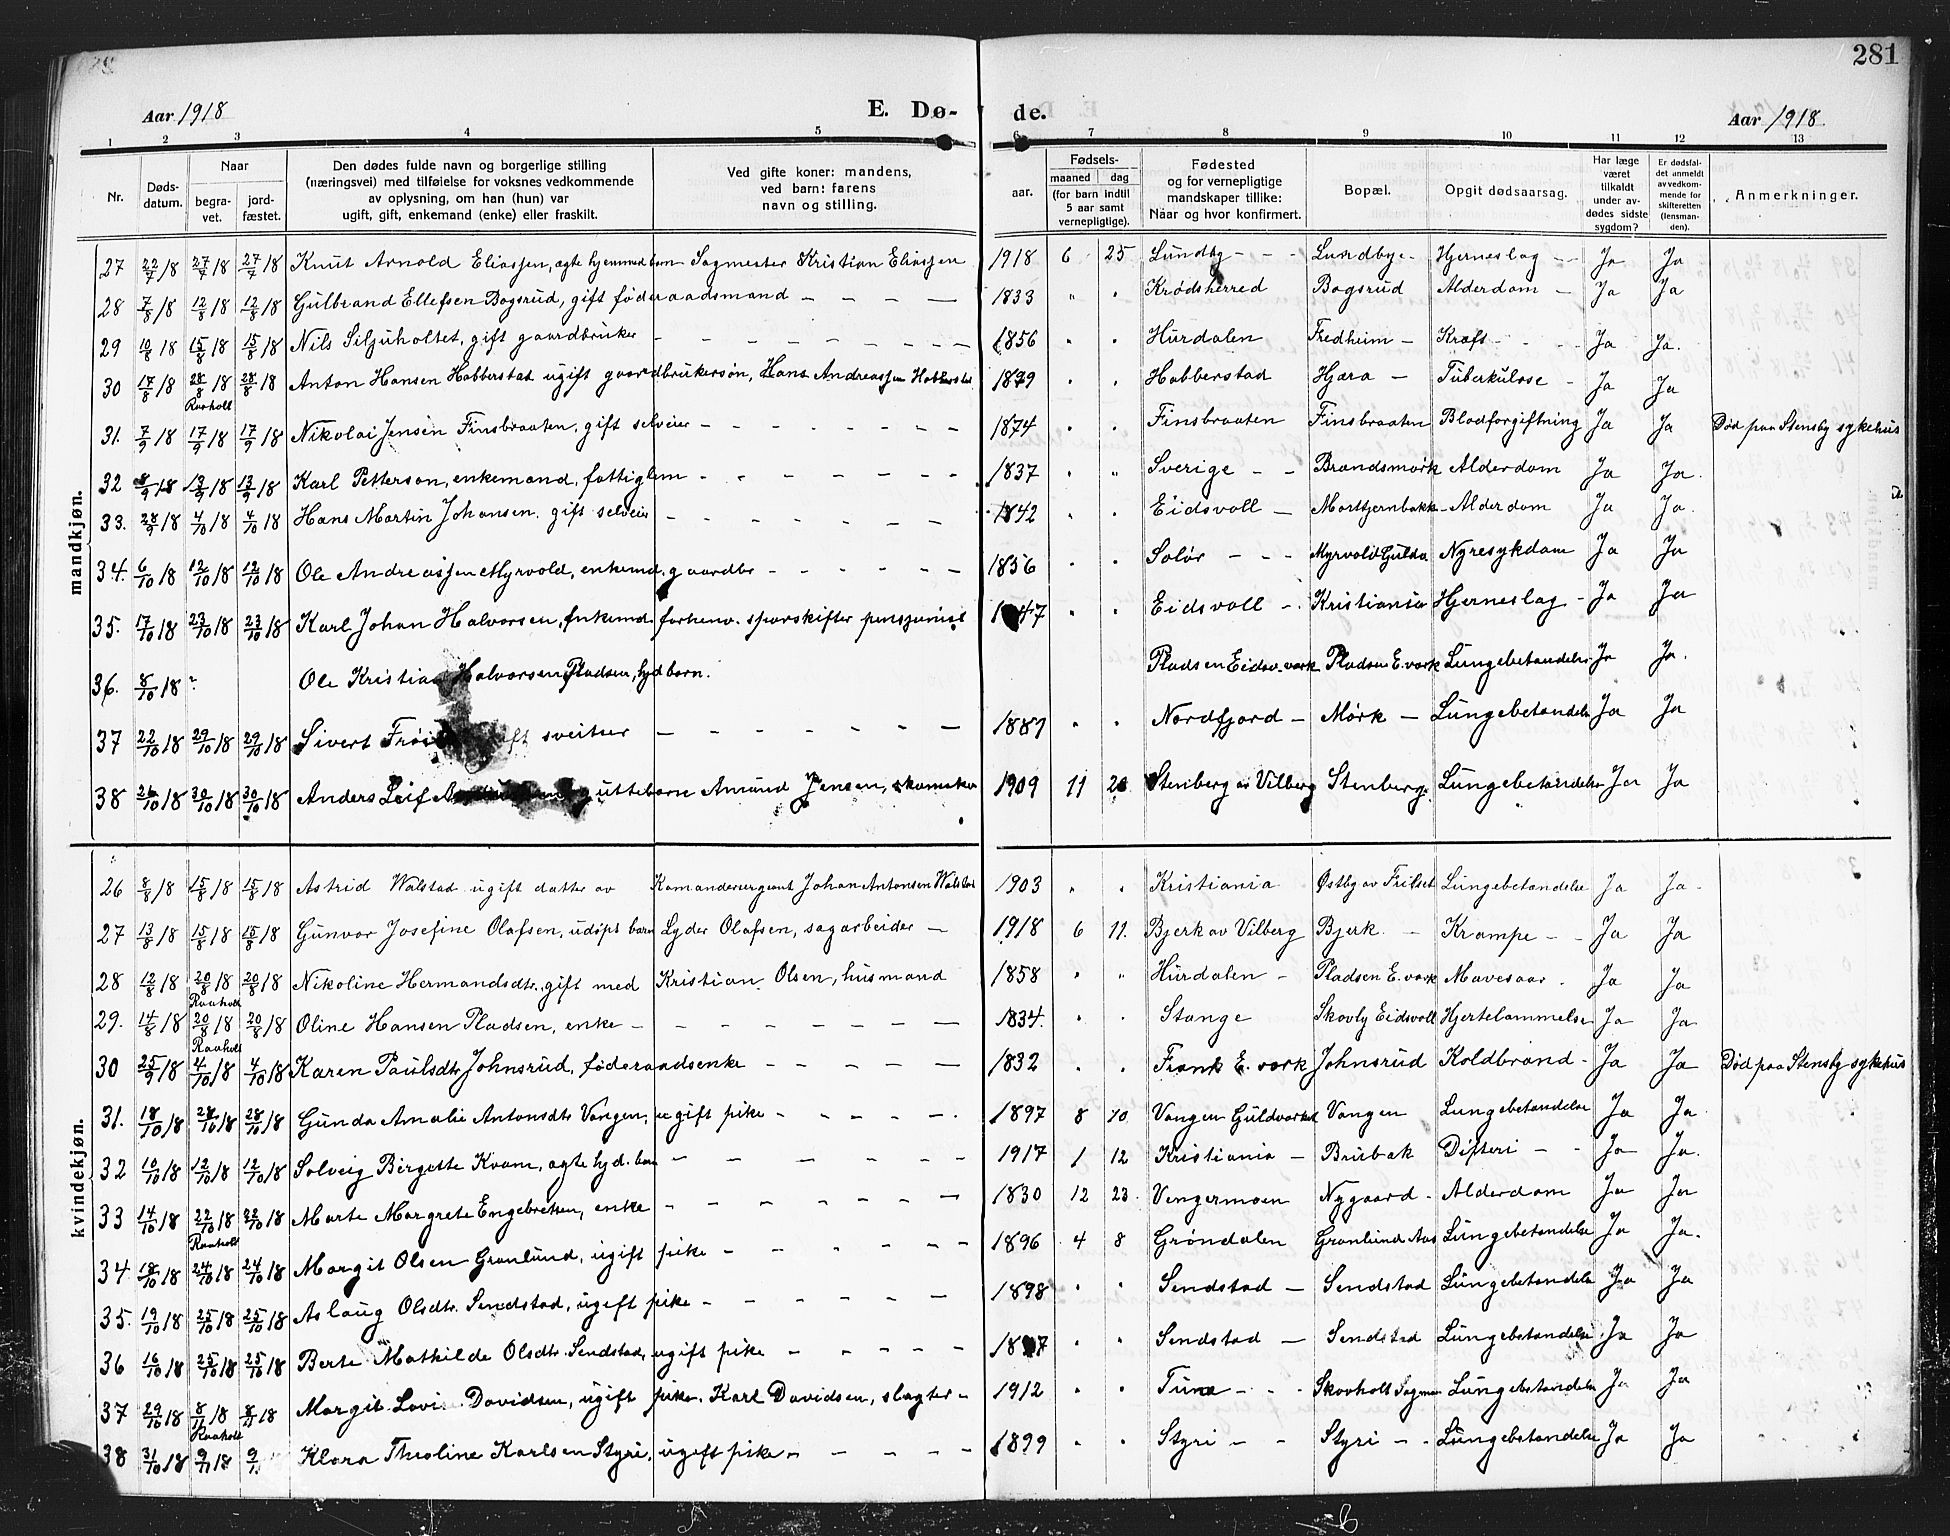 281
Aar 1918 E. Dø- de. Aar 1918
1 2 3 4 5 6 7 8 9 10 11 12 13
Nr. Døds-datum. Naar begra-vet. jord-fæstet. Den dødes fulde navn og borgerlige stilling (næringsvei) med tilføielse for voksnes vedkommende av oplysning, om han (hun) var ugift, gift, enkemand (enke) eller fraskilt. Ved gifte koner: mandens, ved barn: farens navn og stilling. aar. Fødsels- maaned dag (for barn indtil 5 aar samt vernepligtige). Fødested og for vernepligtige mandskaper tillike: Naar og hvor konfirmert. Bopæl. Opgit dødsaarsag. Har læge været tilkaldt under av-dødes sidste sygdom? Er dødsfal-det anmeldt av vedkom-mende for skifteretten (lensman-den). Anmerkninger.
mandkjøn.
27 22/7 18 27/7 18 27/7 18 Knut Arnold Eliassen, ægte hjemmed barn Sagmester Kristian Eliassen 1918 6 25 Lundby - - Lundbye - Hjerneslag - Ja Ja
28 7/8 18 12/8 18 12/8 18 Gulbrand Ellefsen Bogsrud, gift føderaadsmand - - - - 1833 " " Krødsherred Bogsrud Alderdom - Ja Ja
29 10/8 18 15/8 18 15/8 18 Nils Siljuholtet, gift gaardbruker - - - - 1856 " " Hurdalen Fredheim - Kræft - - Ja Ja.
30 17/8 18 28/8 18 Raaholt 28/8 18 Anton Hansen Habberstad ugift gaardbrukersøn, Hans Andreassen Habberstad 1879 " " Habberstad Hjæra - Tuberkulose - Ja Ja
31. 7/9 18 17/9 18 17/9 18 Nikolai Jensen Finsbraaten, gift selveier - - - - 1874 " " Finsbraaten Finsbraaten Blodforgiftning Ja Ja Død paa Stensby sykehus
32 8/9 18 13/9 18 13/9 18 Karl Petterson, enkemand, fattiglem - - - - 1837 " " Sverige - - Brandsmørk Alderdom Ja Ja.
33. 28/9 18 4/10 18 4/10 18 Hans Martin Johansen. gift selveier - - - - 1842 " " Eidsvoll - Morttjernbakk - Alderdom Ja Ja.
34. 6/10 18 12/10 18 12/10 18 Ole Andreassen Myrvold, enkemd, gaardbr - - - - 1836 " " Solør - - - Myrvold Gulda Nyresykdom Ja Ja
35. 17/10 18 23/10 18 23/10 18 Karl Johan Halvorsen, enkemd. forhenv. sporskifter pensjonist 1847 " " Eidsvoll - Kristiania Hjerneslag - Ja Ja
36. 8/10 18 ? Ole Kristian Halvorsen Pladsen, hjd barn. Pladsen Eidsv. værk Pladsen E. værk Lungebetændelse Ja Ja.
37 22/10 18 29/10 18 29/10 18 Sivert gift sveitser - - - - 1887 " " Nordfjord - Mørk - Lungebetændelse Ja Ja
38 26/10 18 30/10 18 30/10 18 Anders Leif guttebarn Amund Jensen, skomaker 1909 11 20 Stenberg av Vilberg Stenberg Lungebetændelse Ja Ja
kvindekjøn.
26 8/8 18 15/8 18 15/8 18 Astrid Walstad ugift datter av Komandersergeant Johan Antonsen Walstad 1903 " " Kristiania Østby av Frilset Lungebetændelse Ja Ja
27 13/8 18 15/8 18 15/8 18 Gunvor Josefine Olafsen, udøpt barn Lyder Olafsen, sagarbeider - 1918 6 11. Bjerk av Vilberg Bjerk - Krampe - - Ja Ja
28 12/8 18 20/8 18 Raaholt 20/8 18 Nikoline Hermandsdtr. gift med Kristian Olsen, husmand 1858 " " Hurdalen - Pladsen E. værk Mavesaar. Ja Ja
29. 14/8 18 20/8 18 Raaholt 20/8 18 Oline Hansen Pladsen, enke - - - - 1834. " " Stange Skovly Eidsvoll Hjertelammelse Ja Ja
30 25/9 18 4/10 18 4/10 18 Karen Paulsdtr Johnsrud, føderaadsenke - - - - 1832 " " Frank E. værk Johnsrud Koldbrand - Ja Ja Død paa Stensby sykehus
31. 18/10 18 28/10 18 28/10 18 Gunda Amalie Antonsdtr Vangen, ugift pike - - - - 1897 8 10 Vangen Guldværket Vangen Lungebetændelse Ja Ja
32 10/10 18 12/10 18 12/10 18 Solveig Birgette Kvam, ægte hjd. barn - - - - 1917 1 12 Kristiania - Brusbak Difteri - - Ja Ja.
33 14/10 18 22/10 18 Raaholt 22/10 18 Marte Margrete Engebretsen, enke - - - - 1830 12 23. Vengermoen Nygaard - Alderdom Ja Ja
34 18/10 18 24/10 18 24/10 18 Margit Olsen Grønlund, ugift pike - - - - 1896 4 8 Grøndalen Grønlund Aas Lungebetændelse Ja Ja.
35. 19/10 18 25/10 18 25/10 18 Aslaug Olsdtr. Sendstad, ugift pike - - - - 1898 " " Sendstad - Sendstad Lungebetændelse Ja Ja
36 16/10 18 25/10 18 25/10 18 Berte Mathilde Olsdtr. Sendstad, ugift pike - - - - " " Sendstad - Sendstad Lungebetændelse Ja Ja
37 29/10 18 8/11 18 Raaholt 8/11 18 Margit Davidsen, ugift pike. Karl Davidsen, slagter - 1912 " " - - Skovholt Lungebetændelse Ja Ja
38 31/10 18 9/11 18 Klara Thioline Karlsen Styri, ugift pike - - - - 1899 " " Styri - - Styri - - Lungebetændelse Ja Ja